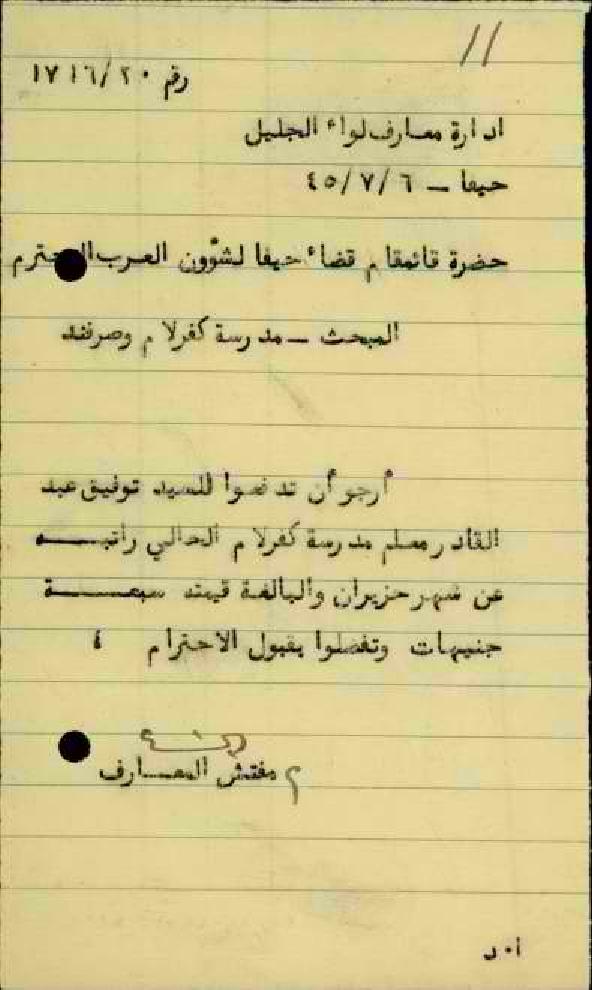 11
رقم ١٧١٦/٢٠
ادارة معارف لواء الجليل
حيفا ــ ٤٥/٧/٦
حضرة قائمقام قضاء حيفا لشؤون العرب المحترم
المبحث ــ مدرسة كفرلام وصرفند
أرجو أن تدفعوا للسيد توفيق عبد
القادر معلم مدرسة كفرلام الحالي راتبــه
عن شهر حزيران والبالغة قيمته سبعـــة
جنيهات وتفضلوا بقبول الاحترام ،
م مفتش المعــارف
أ٠د